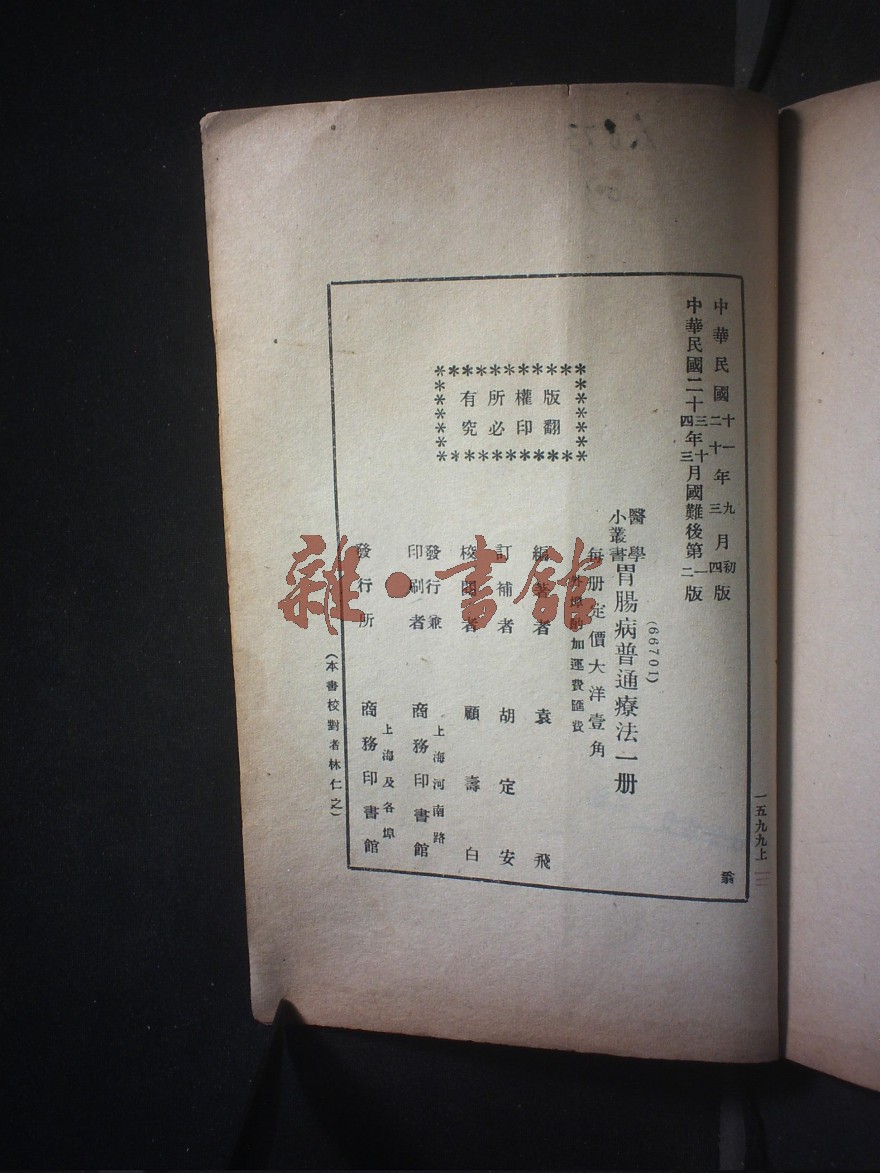 一五九九上
中華民國十一二十年九三月初四版
中華民國二十三四年十三月國難後第一二版
(66701)
醫學小叢書胃腸病普通療法一册
每册定價大洋壹角
外埠酌加運費匯費
版權所有
翻印必究
編著者 袁飛
訂補者 胡定安
校閱者 顧壽白
發行兼印刷者 上海河南路 商務印書館
發行所 上海及各埠 商務印書館
(本書校對者林仁之)
雜·書館